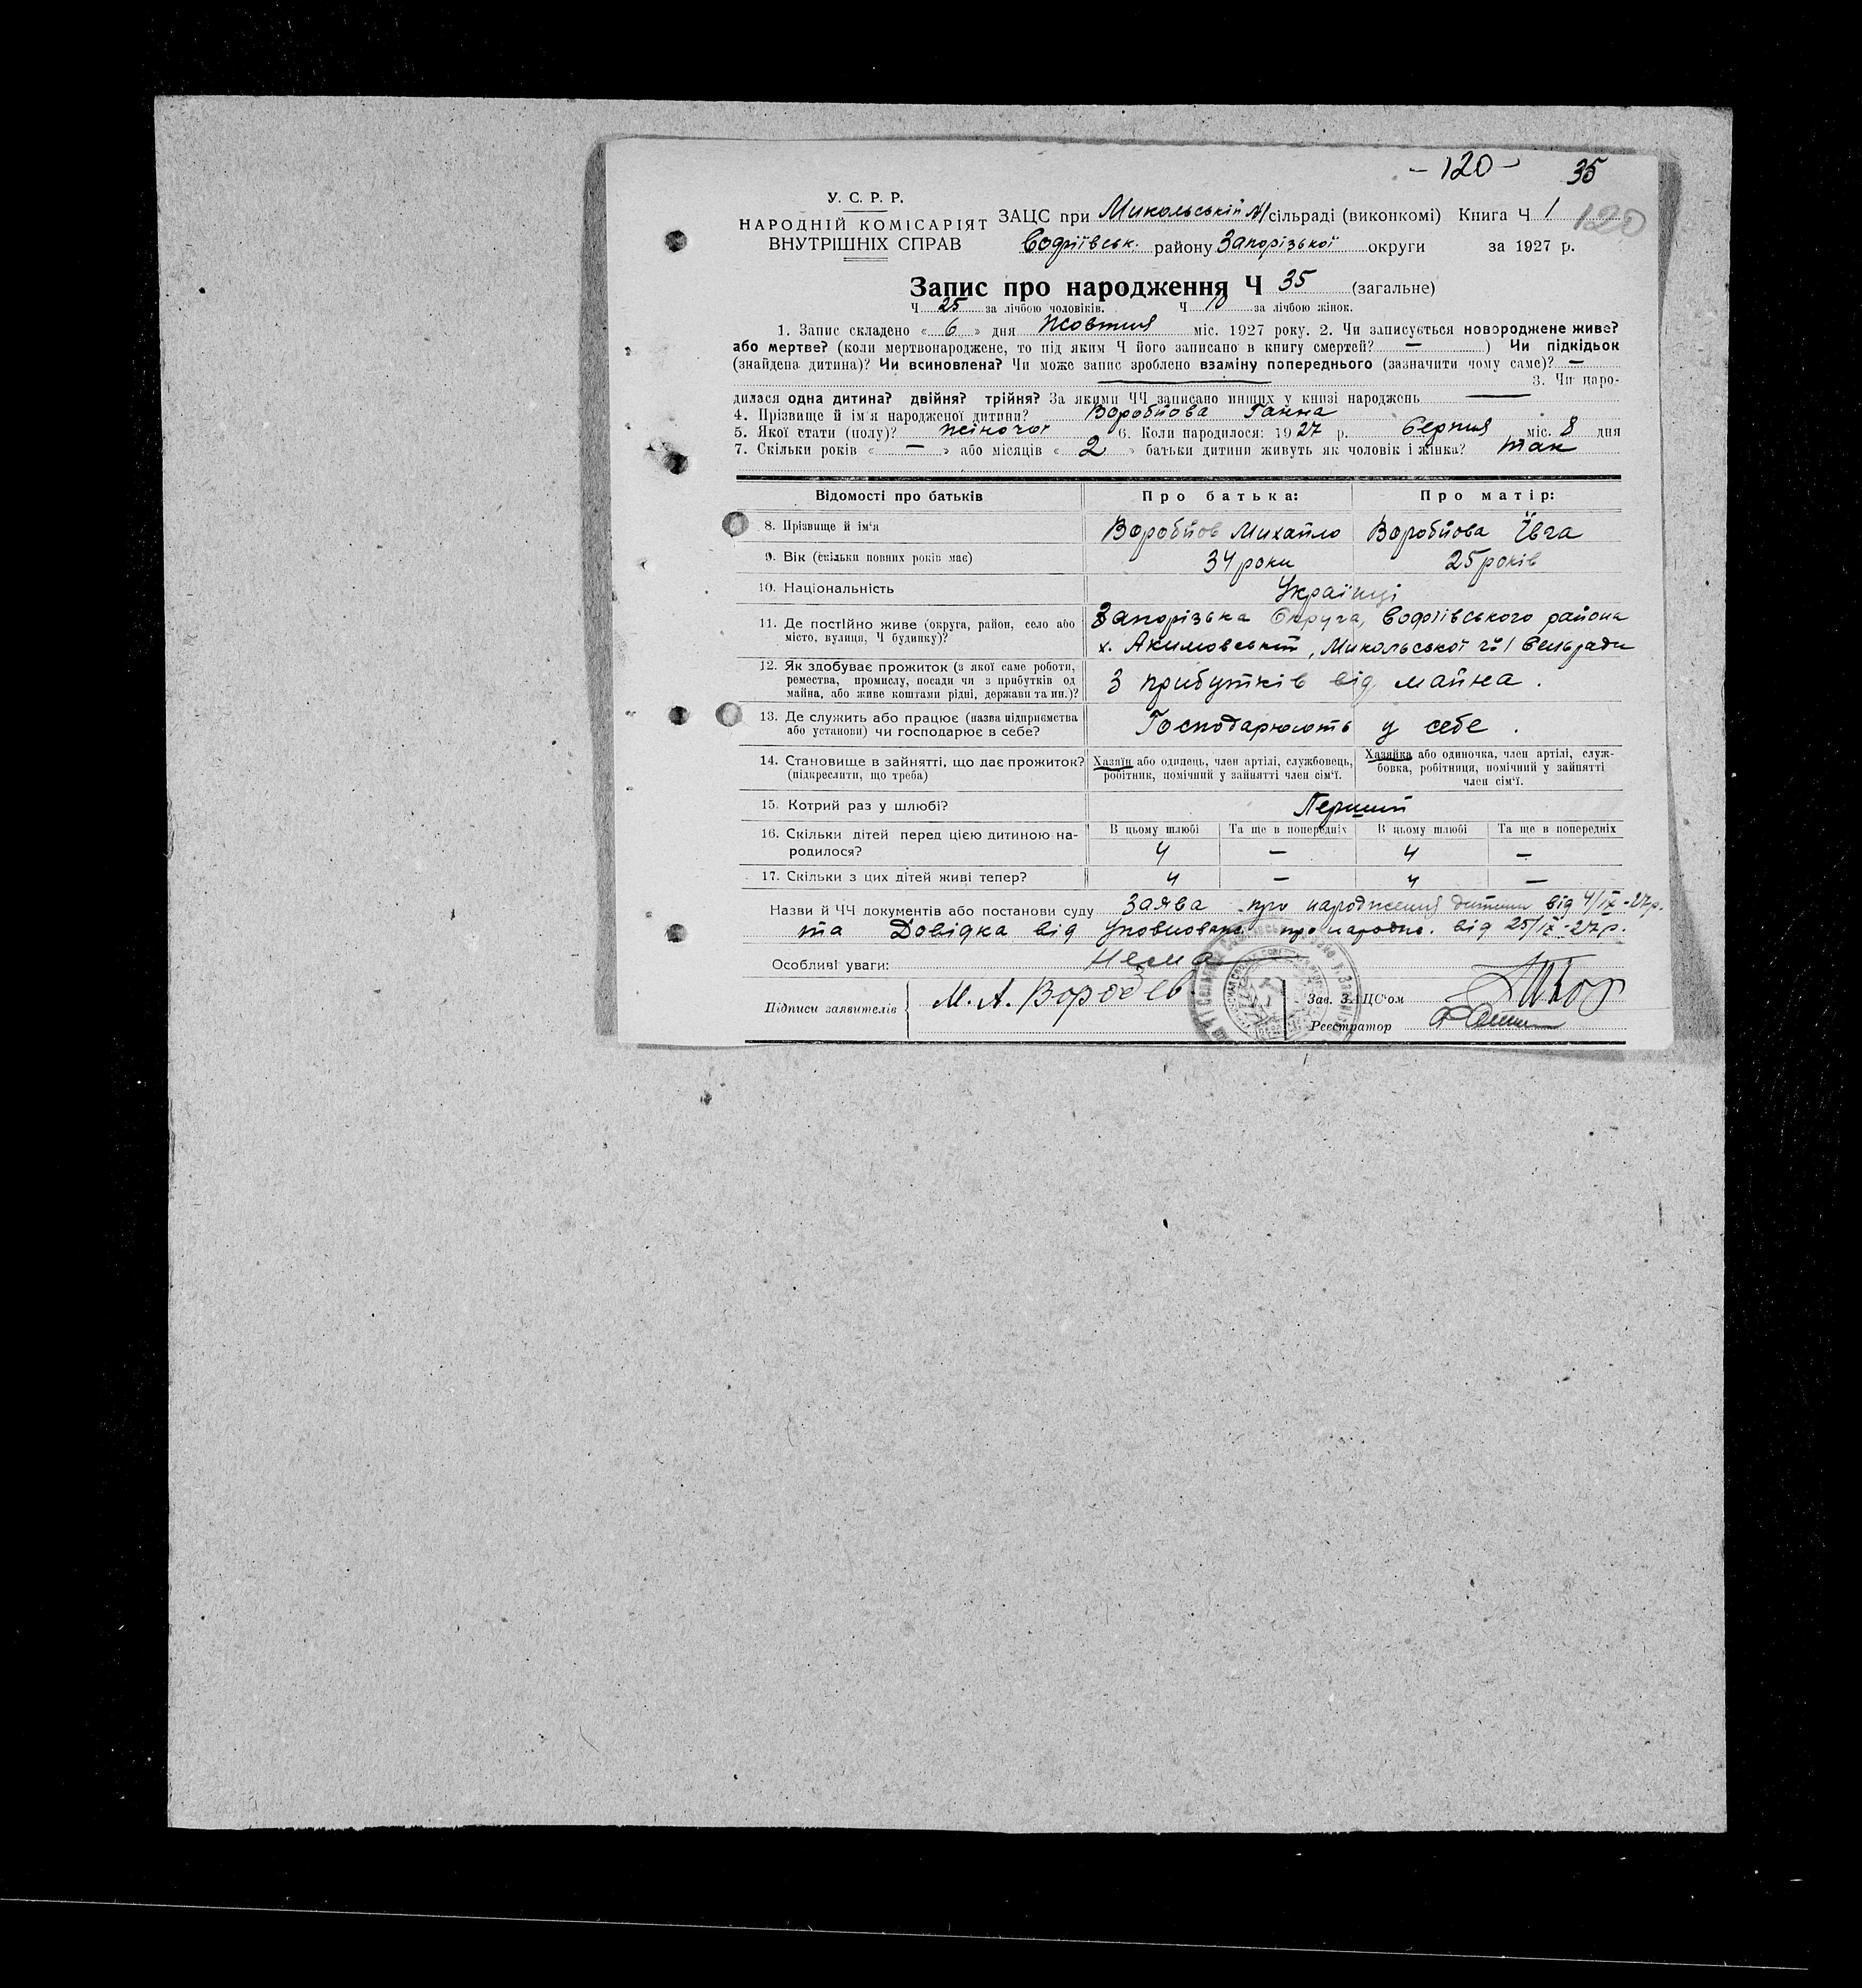 - 120 - 35
У. С. Р. Р.
НАРОДНІЙ КОМІСАРІЯТ
ВНУТРІШНІХ СПРАВ
ЗАЦС при Микольській №1 сільраді (виконкомі) Книга Ч 1 120
Софіївськ. району Запорізької округи за 1927 р.
Запис про народження Ч 35 (загальне)
Ч 25 за лічбою чоловіків. Ч 10 за лічбою жінок.
1. Запис складено « 6 » дня Жовтня міс. 1927 року. 2. Чи записується новороджене живе?
або мертве? (коли мертвонароджене, то під яким Ч його записано в книгу смертей? — ) Чи підкідьок
(знайдена дитина)? Чи всиновлена? Чи може запис зроблено взаміну попереднього (зазначити чому саме)? —
— 3. Чи наро-
дилася одна дитина? двійня? трійня? За якими ЧЧ записано инших у книзі народжень —
4. Прізвище й ім'я народженої дитини? Воробйова Ганна
5. Якої стати (полу)? жіночої 6. Коли народилося: 1927 р. Серпня міс. 8 дня
7. Скільки років « — » або місяців « 2 » батьки дитини живуть як чоловік і жінка? так
Відомості про батьків Про батька: Про матір:
8. Прізвище й ім'я Воробйов Михайло Воробйова Ївга
9. Вік (скільки повних років має) 34 роки 25 років
10. Національність Українці
11. Де постійно живе (округа, район, село або Запорізька Округа, Софіївського района
місто, вулиця, Ч будинку)? х. Акимовський, Микольської №1 Сельради
12. Як здобуває прожиток (з якої саме роботи,
ремества, промислу, посади чи з прибутків од З прибутків від майна.
майна, або живе коштами рідні, держави та ин.)?
13. Де служить або працює (назва підприємства Господарюють у себе.
або установи) чи господарює в себе?
14. Становище в зайнятті, що дає прожиток? Хазяїн або одинець, член артілі, службовець, Хазяйка або одиночка, член артілі, служ-
(підкреслити, що треба) робітник, помічний у зайнятті член сім'ї. бовка, робітниця, помічний у зайнятті
член сім'ї.
15. Котрий раз у шлюбі? Перший
16. Скільки дітей перед цією дитиною на- В цьому шлюбі Та ще в попередніх В цьому шлюбі Та ще в попередніх
родилося? 4 — 4 —
17. Скільки з цих дітей живі тепер? 4 — 4 —
Назви й ЧЧ документів або постанови суду Заява про народження дитини від 4/IX-27р.
та Довідка від Уповноваж. про народж. від 25/IX-27р.
Особливі уваги: Нема
Підписи заявителів М. А. Воробев
Зав. ЗАЦС'ом
Реєстратор